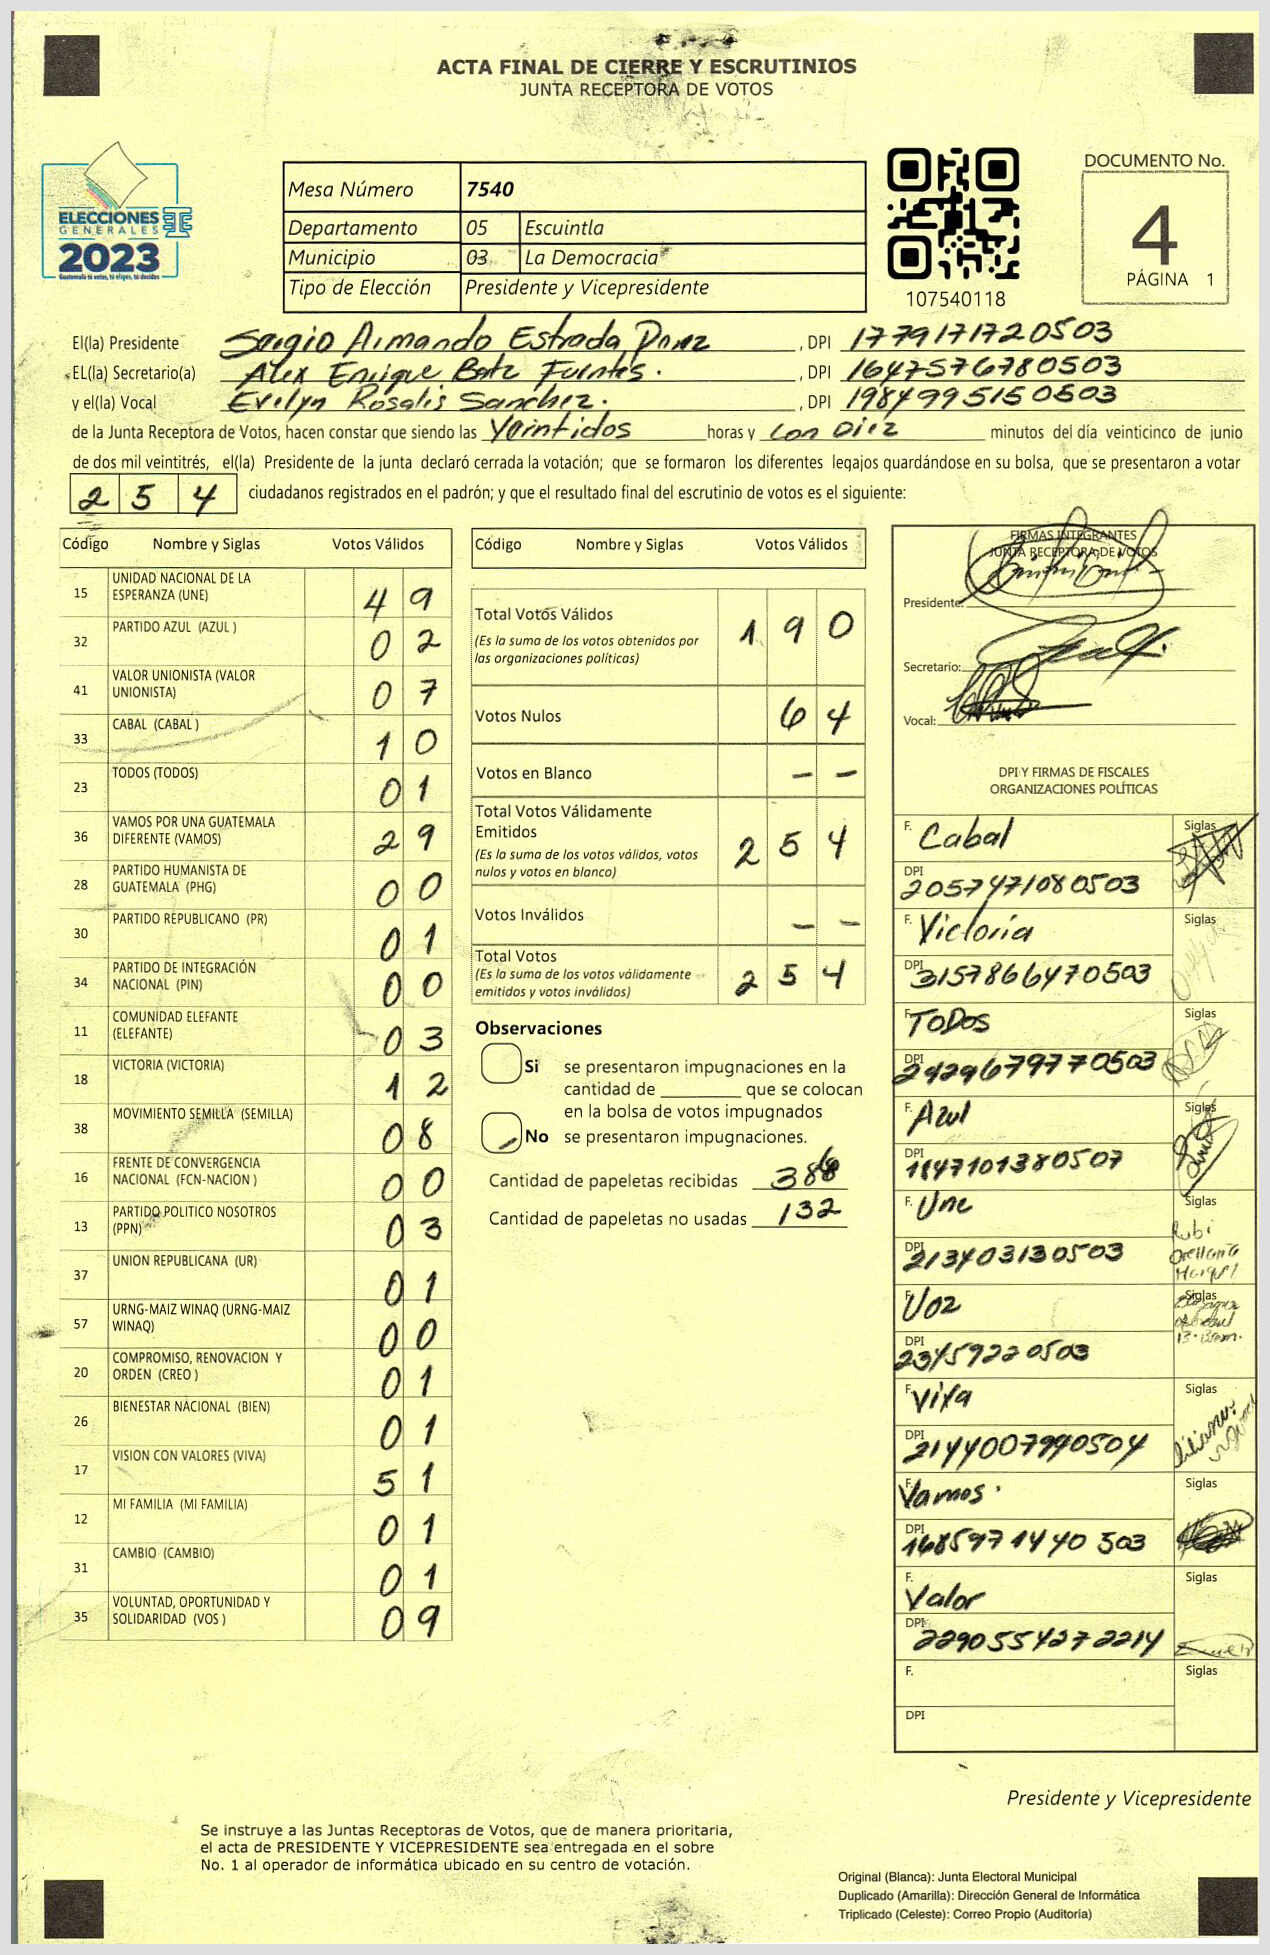 ACTA FINAL DE CIERRE Y ESCRUTINIOS
JUNTA RECEPTORA DE VOTOS
ELECCIONES
GENERALES
2023
Guatemala tú votas, tú eliges, tú decides
Mesa Número 7540
Departamento 05 Escuintla
Municipio 03 La Democracia
Tipo de Elección Presidente y Vicepresidente
107540118
DOCUMENTO No.
4
PÁGINA 1
El(la) Presidente Sergio Armando Estrada , DPI 1779171720503
EL(la) Secretario(a) Alex Enrique Batz Fuentes. , DPI 1647576780503
y el(la) Vocal Evelyn Rosalis Sanchez. , DPI 1984995150503
de la Junta Receptora de Votos, hacen constar que siendo las Veintidos horas y con Diez minutos del día veinticinco de junio
de dos mil veintitrés, el(la) Presidente de la junta declaró cerrada la votación; que se formaron los diferentes legajos guardándose en su bolsa, que se presentaron a votar
254 ciudadanos registrados en el padrón; y que el resultado final del escrutinio de votos es el siguiente:
Código Nombre y Siglas Votos Válidos
15 UNIDAD NACIONAL DE LA ESPERANZA (UNE) 49
32 PARTIDO AZUL (AZUL ) 02
41 VALOR UNIONISTA (VALOR UNIONISTA) 07
33 CABAL (CABAL ) 10
23 TODOS (TODOS) 01
36 VAMOS POR UNA GUATEMALA DIFERENTE (VAMOS) 29
28 PARTIDO HUMANISTA DE GUATEMALA (PHG) 00
30 PARTIDO REPUBLICANO (PR) 01
34 PARTIDO DE INTEGRACIÓN NACIONAL (PIN) 00
11 COMUNIDAD ELEFANTE (ELEFANTE) 03
18 VICTORIA (VICTORIA) 12
38 MOVIMIENTO SEMILLA (SEMILLA) 08
16 FRENTE DE CONVERGENCIA NACIONAL (FCN-NACION ) 00
13 PARTIDO POLITICO NOSOTROS (PPN) 03
37 UNION REPUBLICANA (UR) 01
57 URNG-MAIZ WINAQ (URNG-MAIZ WINAQ) 00
20 COMPROMISO, RENOVACION Y ORDEN (CREO ) 01
26 BIENESTAR NACIONAL (BIEN) 01
17 VISION CON VALORES (VIVA) 51
12 MI FAMILIA (MI FAMILIA) 01
31 CAMBIO (CAMBIO) 01
35 VOLUNTAD, OPORTUNIDAD Y SOLIDARIDAD (VOS ) 09
Código Nombre y Siglas Votos Válidos
Total Votos Válidos 190
(Es la suma de los votos obtenidos por
las organizaciones políticas)
Votos Nulos 64
Votos en Blanco – –
Total Votos Válidamente
Emitidos 254
(Es la suma de los votos válidos, votos
nulos y votos en blanco)
Votos Inválidos – –
Total Votos 254
(Es la suma de los votos válidamente
emitidos y votos inválidos)
Observaciones
Si se presentaron impugnaciones en la
cantidad de ________ que se colocan
en la bolsa de votos impugnados
No se presentaron impugnaciones.
Cantidad de papeletas recibidas 386
Cantidad de papeletas no usadas 132
FIRMAS INTEGRANTES
JUNTA RECEPTORA DE VOTOS
Presidente:
Secretario:
Vocal:
DPI Y FIRMAS DE FISCALES
ORGANIZACIONES POLÍTICAS
F. Cabal Siglas
DPI 2057471080503
F. Victoria Siglas
DPI 3157866470503
F. TODOS Siglas
DPI 2929679770503
F. Azul Siglas
DPI 1847101380507
F. Une Siglas
DPI 213403130503
Rubi
Orellana
F. Voz Siglas
DPI 23459220503
F. Viva Siglas
DPI 2144007990504
F. Vamos. Siglas
DPI 1685971440503
F. Valor Siglas
DPI 2290554272214
F. Siglas
DPI
Presidente y Vicepresidente
Se instruye a las Juntas Receptoras de Votos, que de manera prioritaria,
el acta de PRESIDENTE Y VICEPRESIDENTE sea entregada en el sobre
No. 1 al operador de informática ubicado en su centro de votación.
Original (Blanca): Junta Electoral Municipal
Duplicado (Amarilla): Dirección General de Informática
Triplicado (Celeste): Correo Propio (Auditoría)